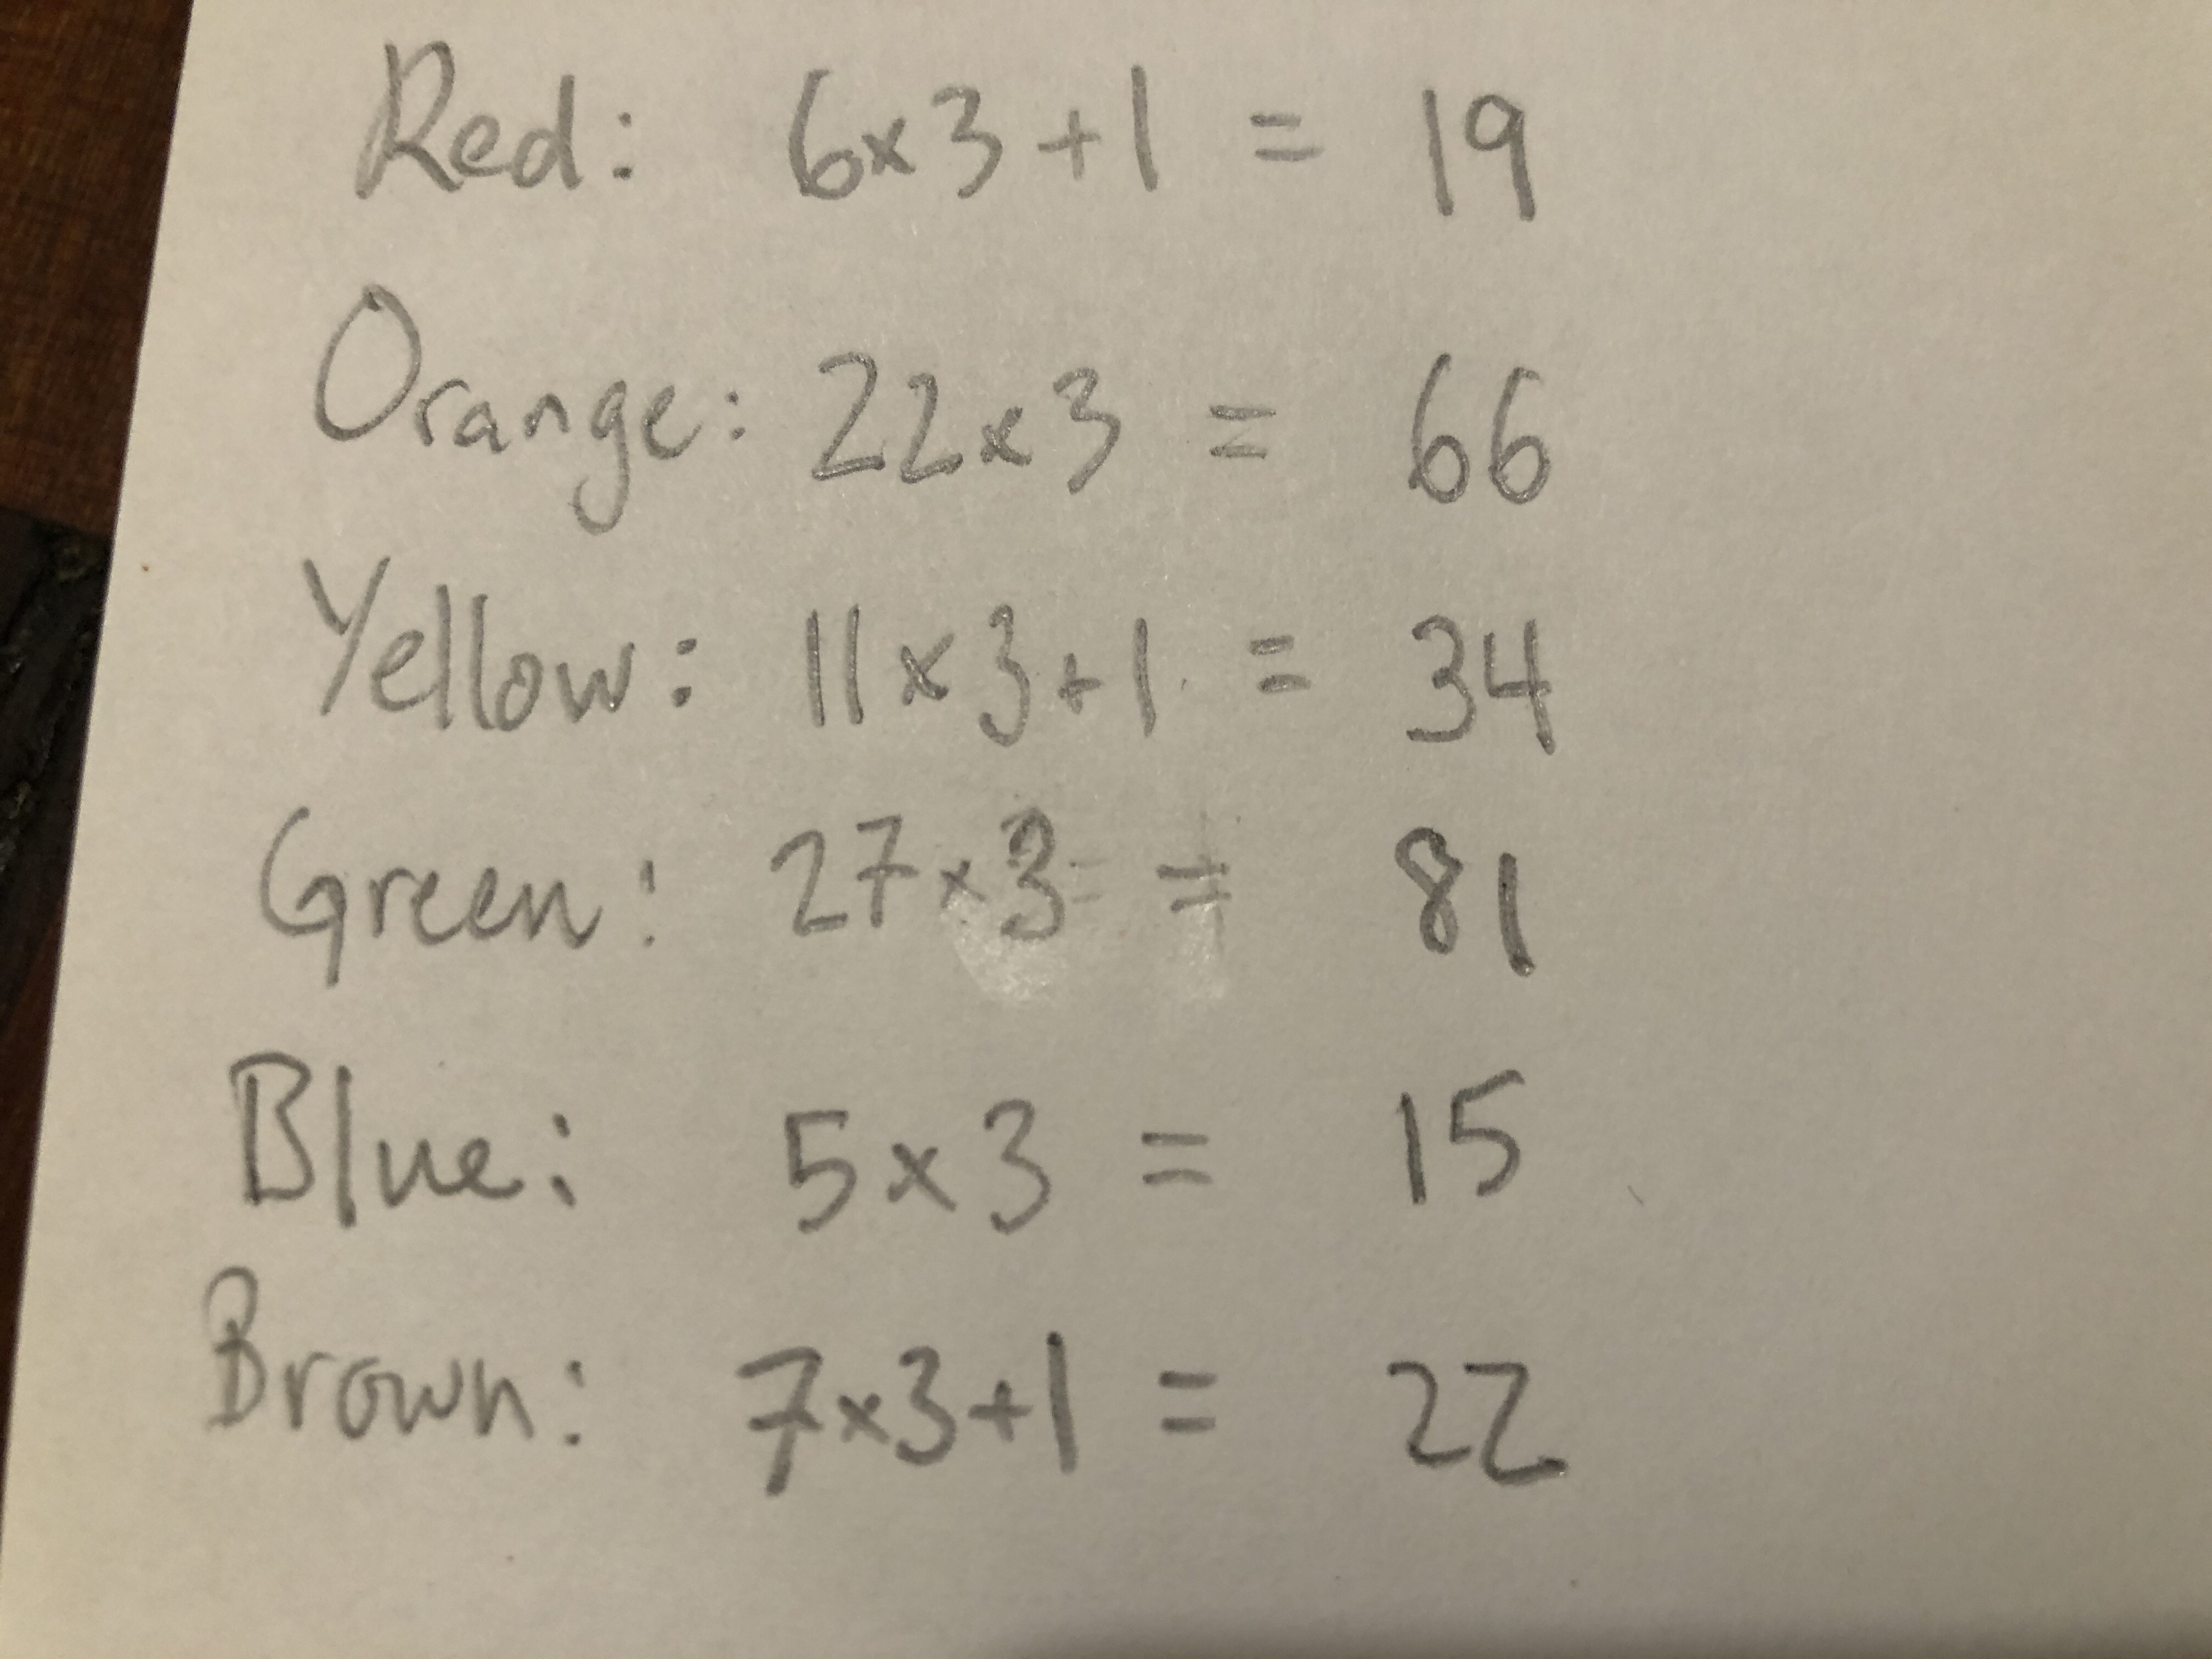 Red: 6x3+1 = 19
Orange: 22x3 = 66
Yellow: 11x3+1 = 34
Green: 27x3 = 81
Blue: 5x3 = 15
Brown: 7x3+1 = 22